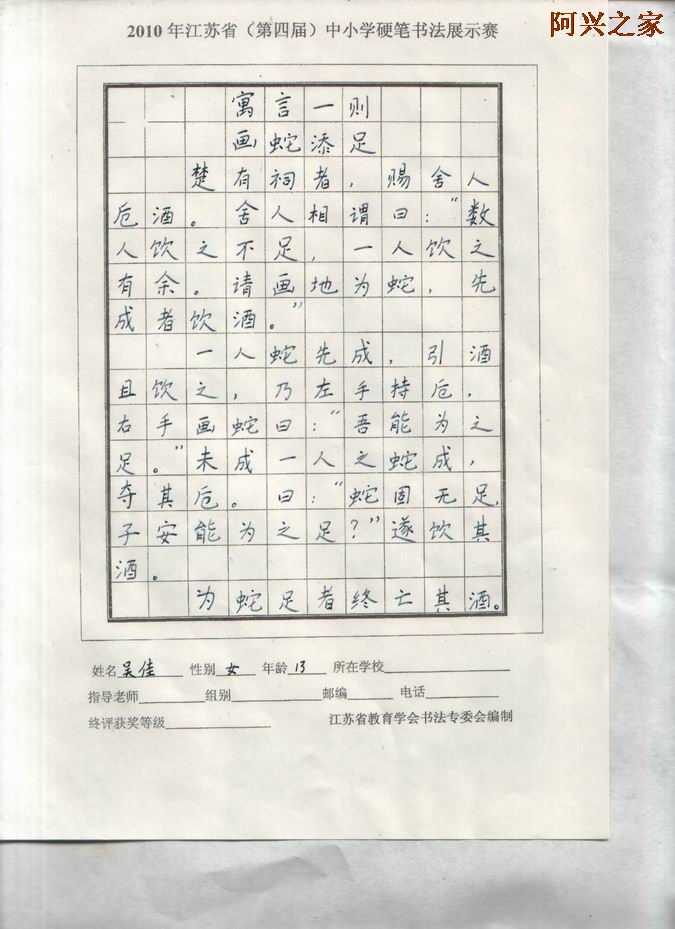 阿兴之家
2010年江苏省（第四届）中小学硬笔书法展示赛
寓言一则
画蛇添足
楚有祠者，赐舍人
卮酒。舍人相谓曰：“数
人饮之不足，一人饮之
有余。请画地为蛇，先
成者饮酒。”
一人蛇先成，引酒
且饮之，乃左手持卮，
右手画蛇曰：“吾能为之
足。”未成一人之蛇成，
夺其卮。曰：“蛇固无足，
子安能为之足？”遂饮其
酒。
为蛇足者终亡其酒。
姓名吴佳 性别女 年龄13 所在学校
指导老师 组别 邮编 电话
终评获奖等级 江苏省教育学会书法专委会编制